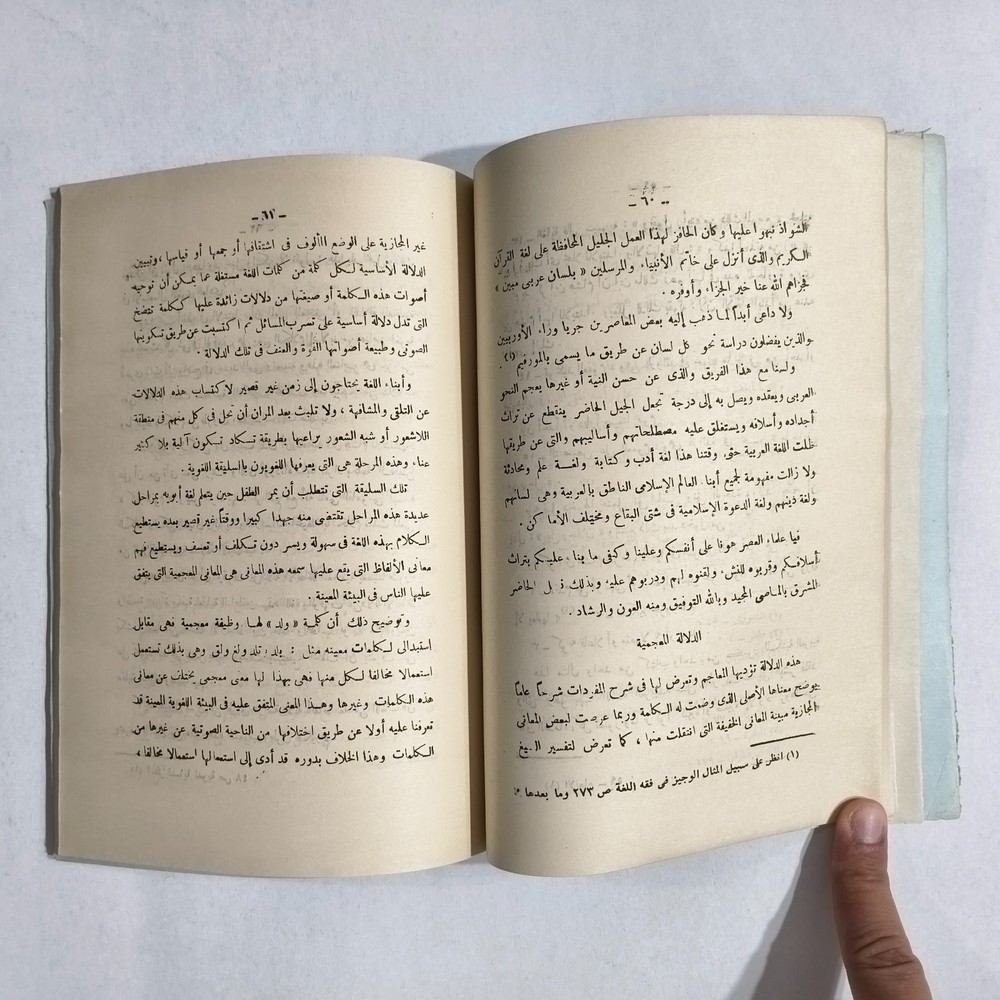 - ٦٠ -
الشواذ نبهوا عليها وكان الحافز لهذا العمل الجليل المحافظة على لغة القرآن
الكريم والذى أنزل على خاتم الأنبياء والمرسلين « بلسان عربى مبين »
فجزاهم الله عنا خير الجزاء وأوفره .
ولا داعى أبداً لما ذهب إليه بعض المعاصرين جريا وراء الأوربيين
والذين يفضلون دراسة نحو كل لسان عن طريق ما يسمى بالمورفيم (١) .
ولسنا مع هذا الفريق والذى عن حسن النية أو غيرها يعجم النحو
العربى ويعقده ويصل به إلى درجة تجعل الجيل الحاضر ينقطع عن تراث
أجداده وأسلافه ويستغلق عليه مصطلحاتهم وأساليبهم والتى عن طريقها
ظلت اللغة العربية حتى وقتنا هذا لغة أدب وكتابة ولغة علم ومحادثة
ولا زالت مفهومة لجميع أبناء العالم الإسلامى الناطق بالعربية وهى لسانهم
ولغة دينهم ولغة الدعوة الإسلامية فى شتى البقاع ومختلف الأماكن .
فيا علماء العصر هونا على أنفسكم وعلينا وكفى ما بنا، عليكم بتراث
أسلافكم وقربوه للنشء ولقنوه لهم ودربوهم عليه وبذلك الحاضر
المشرق بالماضى المجيد وبالله التوفيق ومنه العون والرشاد .
الدلالة المعجمية
هذه الدلالة تؤديها المعاجم وتعرض لها فى شرح المفردات شرحاً عاماً
يوضح معناها الأصلى الذى وضعت له الكلمة وربما عرضت لبعض المعانى
المجازية مبينة المعانى الحقيقة التى انتقلت منها ، كما تعرض لتفسير الصيغ
(١) انظر على سبيل المثال الوجيز فى فقه اللغة ص ٢٧٣ وما بعدها
- ٦١ -
غير المجازية على الوضع المألوف فى اشتقاقها أو جمعها أو قياسها ، وتبيين
الدلالة الأساسية لكل كلمة من كلمات اللغة مستغلة عما يمكن أن توحيه
أصوات هذه الكلمة أو صيغتها من دلالات زائدة عليها ككلمة تنضخ
التى تدل دلالة أساسية على تسرب السائل ثم اكتسبت عن طريق تكوينها
الصوتى وطبيعة أصواتها القوة والعنف فى تلك الدلالة .
وأبناء اللغة يحتاجون إلى زمن غير قصير لاكتساب هذه الدلالات
عن التلقى والمشافهة ، ولا تلبث بعد المران أن تحل فى كل منهم فى منطقة
اللاشعور أو شبه الشعور يراعيها بطريقة تكاد تكون آلية بلا كثير
عناء وهذه المرحلة هى التى يعرفها اللغويون بالسليقة اللغوية .
تلك السليقة التى تتطلب أن يمر الطفل حين يتعلم لغة أبويه بمراحل
عديدة هذه المراحل تقتضى منه جهدا كبيرا ووقتاً غير قصير بعده يستطيع
الكلام بهذه اللغة فى سهولة ويسر دون تكلف أو تعسف ويستطيع فهم
معانى الألفاظ التى يقع عليها سمعه هذه المعانى هى المعانى المعجمية التى يتفق
عليها الناس فى البيئة المعينة .
وتوضيح ذلك أن كلمة « ولد » لها وظيفة معجمية فهى مقابل
استبدالى لكلمات معينه مثل : بلد ، تلد ولغ ولق وهى بذلك تستعمل
استعمالا مخالفا لكل منها فهى بهذا لها معنى معجمى يختلف عن معانى
هذه الكلمات وغيرها وهذا المعنى المتفق عليه فى البيئة اللغوية المعينة قد
تعرفنا عليه أولا عن طريق اختلافها من الناحية الصوتية عن غيرها من
الكلمات وهذا الخلاف بدوره قد أدى إلى استعمالها استعمالا مخالفا ،